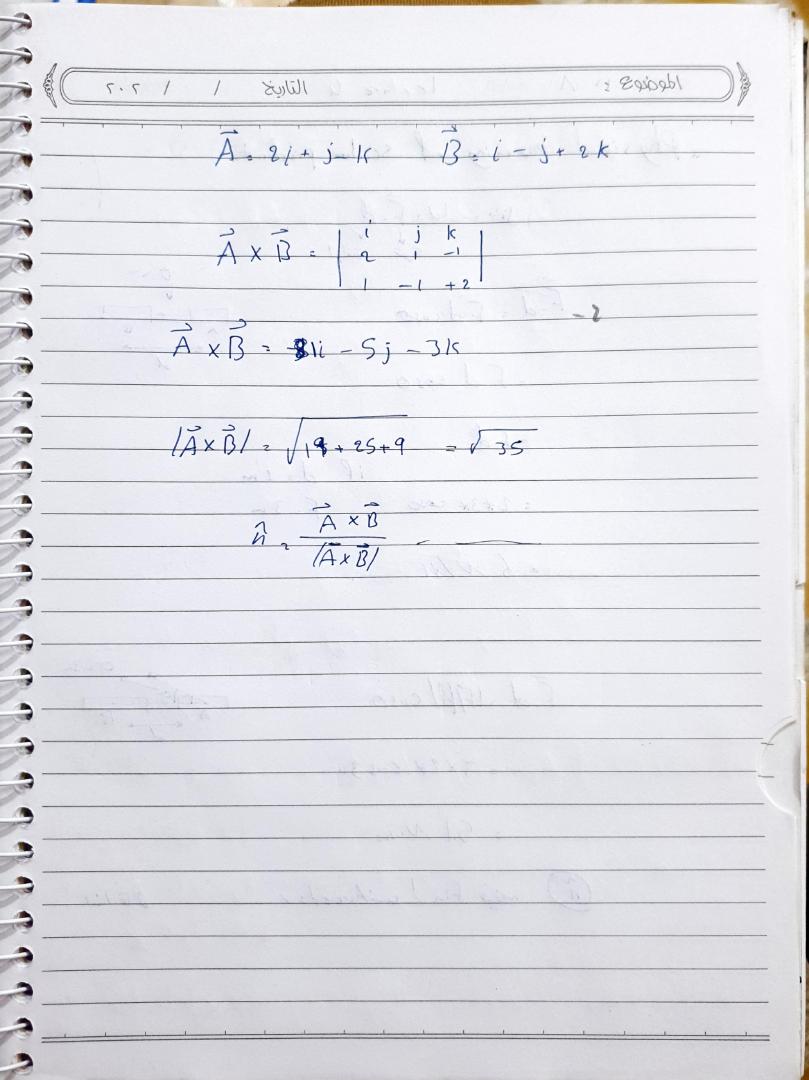 الموضوع : التاريخ / / ٢٠٢
A⃗ = 2i + j - k B⃗ = i - j + 2k
A⃗ × B⃗ = | i j k
2 1 -1
1 -1 +2 |
-2
A⃗ × B⃗ = 1i - 5j - 3k
|A⃗ × B⃗| = √1 + 25 + 9 = √35
n̂ = A⃗ × B⃗ / |A⃗ × B⃗|